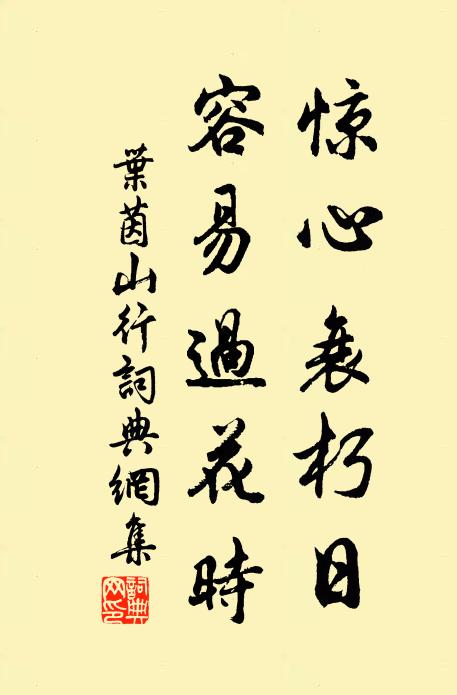 惊心衰朽日
容易過花時
葉茵山行詞典網集
詞典
网印